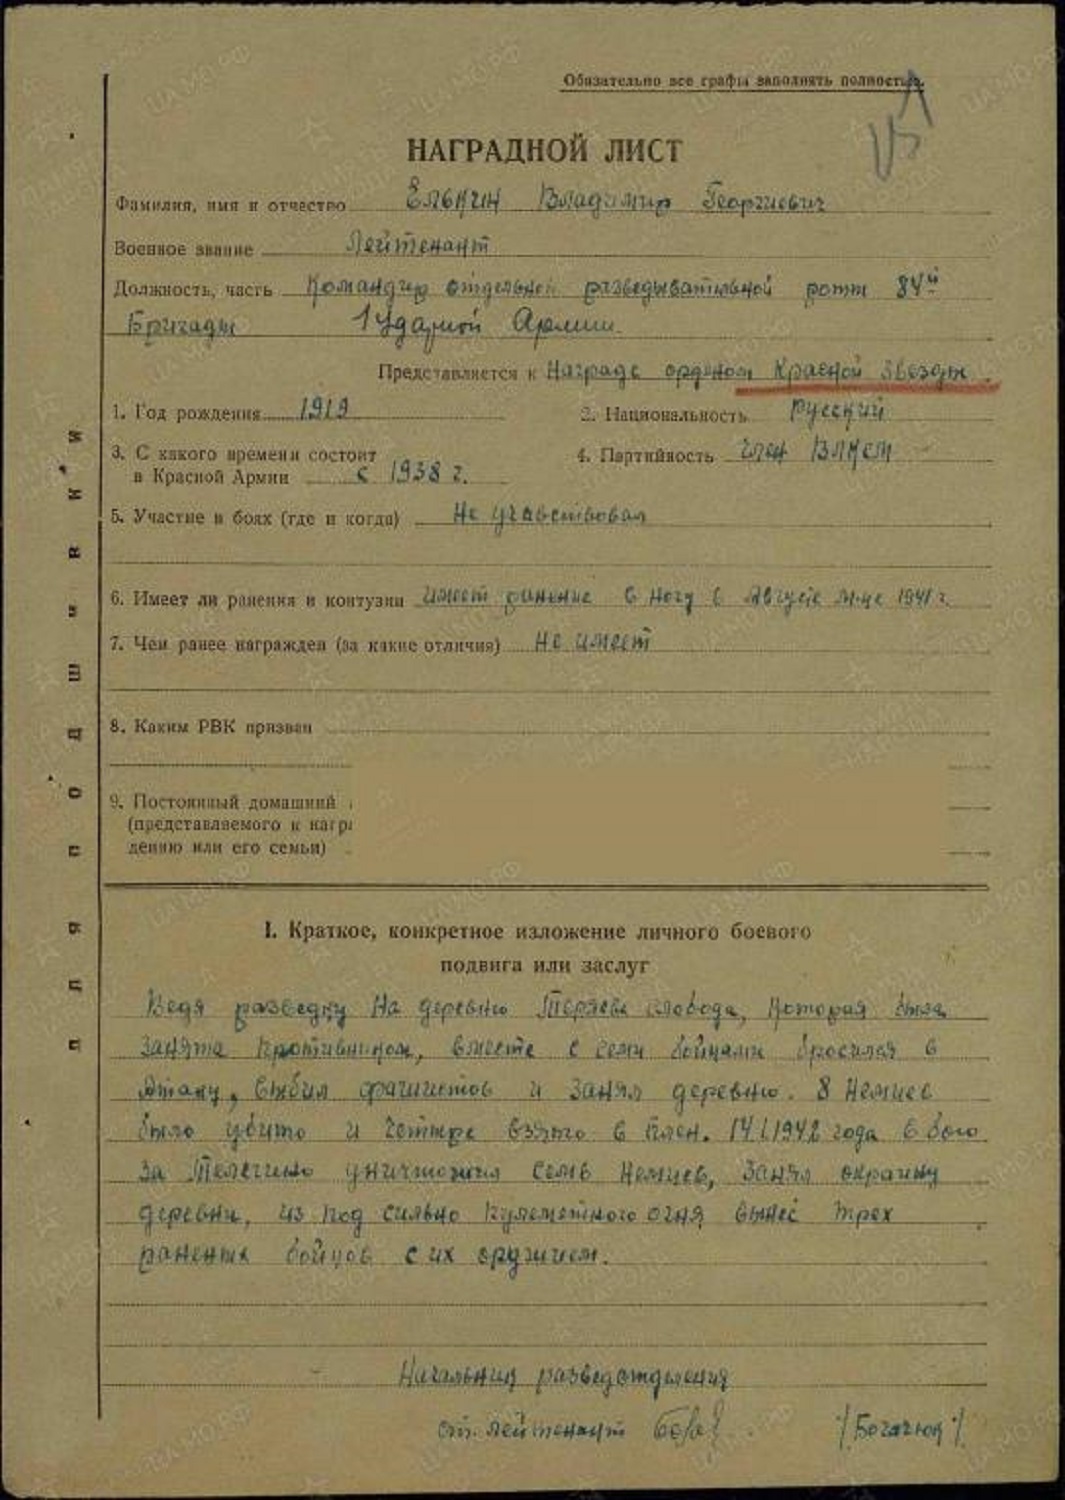 Обязательно все графы заполнять полностью.
НАГРАДНОЙ ЛИСТ
Фамилия, имя и отчество Елькин Владимир Георгиевич
Военное звание Лейтенант
Должность, часть Командир отдельной разведывательной роты 84й
Бригады 1 Ударной Армии.
Представляется к Награде орденом Красной Звезды.
1. Год рождения 1919 2. Национальность Русский
3. С какого времени состоит 4. Партийность член ВЛКСМ
в Красной Армии с 1938 г.
5. Участие в боях (где и когда) Не учавствовал
6. Имеет ли ранения и контузии имеет ранение в ногу в Августе м-це 1941 г.
7. Чем ранее награжден (за какие отличия) Не имеет
8. Каким РВК призван
9. Постоянный домашний
(представляемого к награ
дению или его семьи)
I. Краткое, конкретное изложение личного боевого
подвига или заслуг
Ведя разведку на деревню Теряева слобода, которая была
занята противником, вместе с семи бойцами бросился в
Атаку, выбил фашистов и занял деревню. 8 Немцев
было убито и четыре взято в плен. 14.1.1942 года в бою
за Телегино уничтожил семь Немцев, занял окраину
деревни, из под сильно пулеметного огня вынес трех
раненых бойцов с их оружием.
Начальник разведотделения
ст. лейтенант /Богачюк/
для подшивки
ЦАМО.РФ